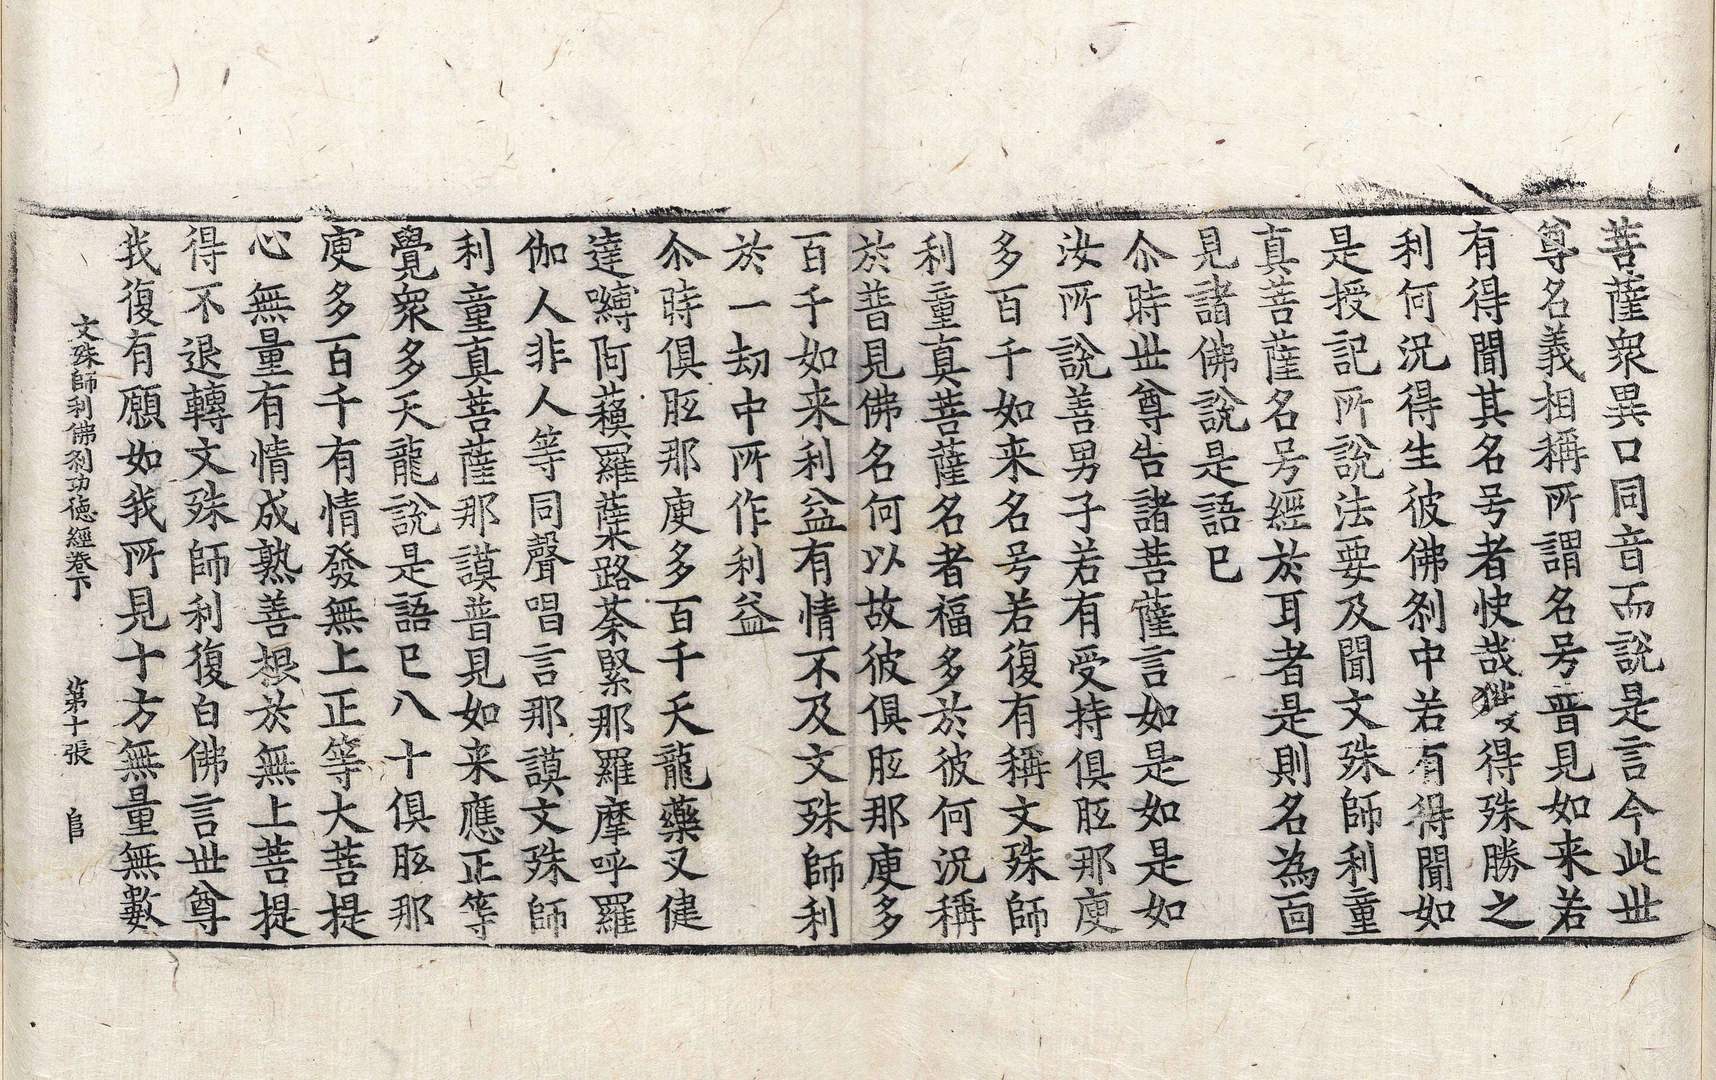 菩薩衆異口同音而說是言今此世
尊名義相稱所謂名号普見如来若
有得聞其名号者快哉獲得殊勝之
利何況得生彼佛刹中若有得聞如
是授記所說法要及聞文殊師利童
真菩薩名号經於耳者是則名為面
見諸佛說是語已
尒時世尊告諸菩薩言如是如是如
汝所說善男子若有受持俱胝那庾
多百千如来名号若復有稱文殊師
利童真菩薩名者福多於彼何況稱
於普見佛名何以故彼俱胝那庾多
百千如来利益有情不及文殊師利
於一劫中所作利益
尒時俱胝那庾多百千天龍藥叉健
達嚩阿蘓羅蘖路荼緊那羅摩呼羅
伽人非人等同聲唱言那謨文殊師
利童真菩薩那謨普見如来應正等
覺衆多天龍說是語已八十俱胝那
庾多百千有情發無上正等大菩提
心無量有情成熟善根於無上菩提
得不退轉文殊師利復白佛言世尊
我復有願如我所見十方無量無數
文殊師利佛刹功德經卷下 第十張